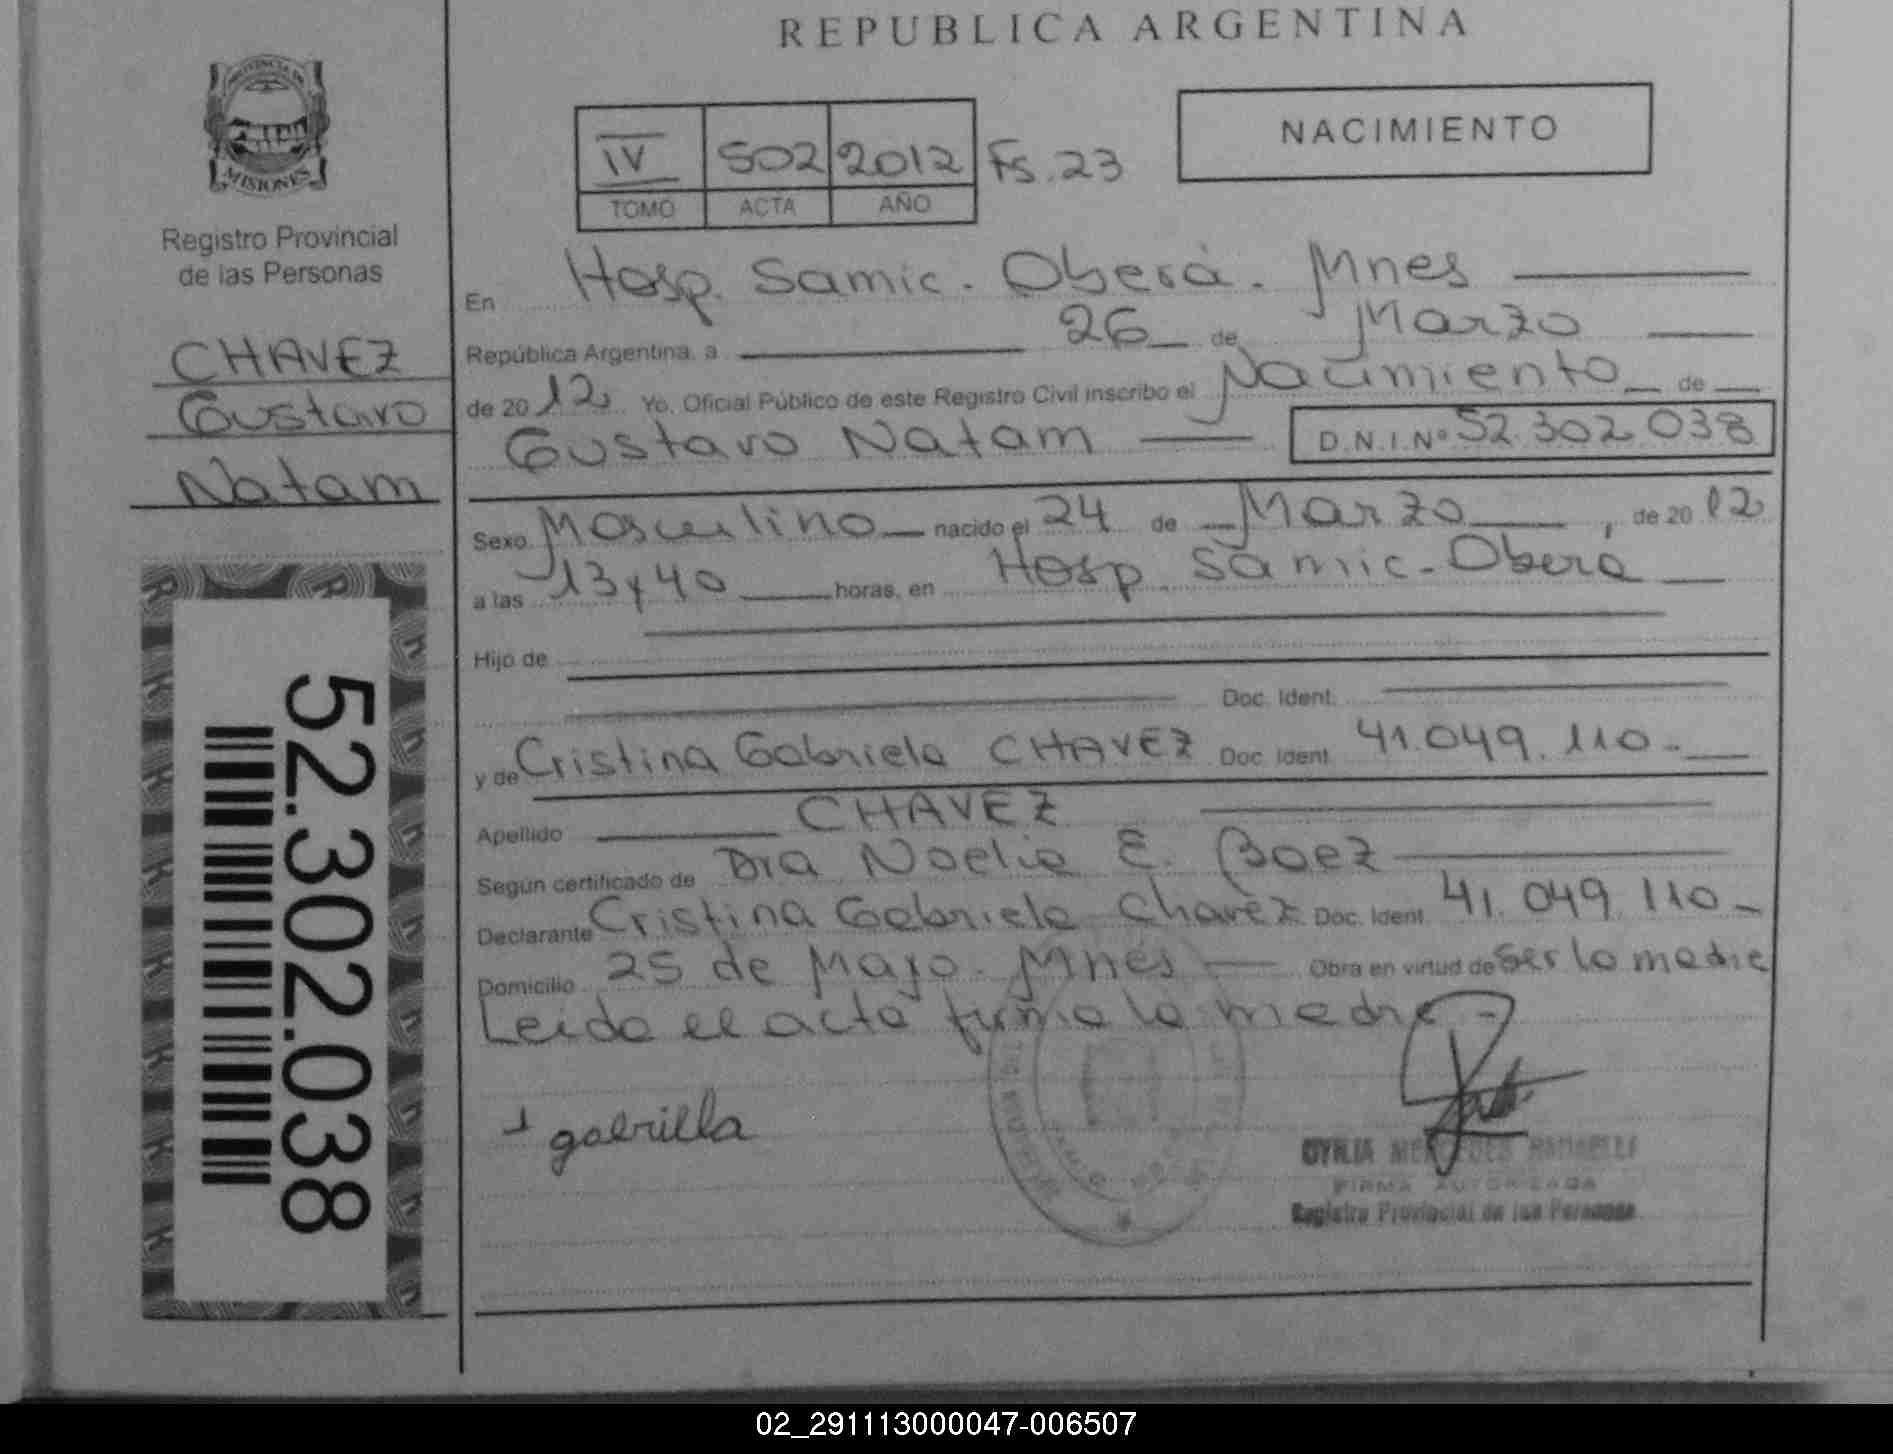 REPUBLICA ARGENTINA
PROVINCIA DE
MISIONES
Registro Provincial
de las Personas
CHAVEZ
Gustavo
Natam
52.302.038
IV 502 2012 Fs. 23
TOMO ACTA AÑO
NACIMIENTO
En Hosp. Samic. Oberá. Mnes
República Argentina, a 26 de Marzo
de 2012 Yo, Oficial Público de este Registro Civil inscribo el Nacimiento de
Gustavo Natam D.N.I.Nº 52.302.038
Sexo Masculino nacido el 24 de Marzo, de 2012
a las 13 y 40 horas, en Hosp. Samic. Oberá
Hijo de
Doc. Ident.
y de Cristina Gabriela CHAVEZ Doc. Ident. 41.049.110.-
Apellido CHAVEZ
Según certificado de Dra Noelia E. Baez
Declarante Cristina Gabriela Chavez Doc. Ident. 41.049.110-
Domicilio 25 de Mayo. Mnes Obra en virtud de ser la madre
Leida el acta firma la madre-
gabriella
MERCEDES
FIRMA AUTORIZADA
Registro Provincial de las Personas
02_291113000047-006507